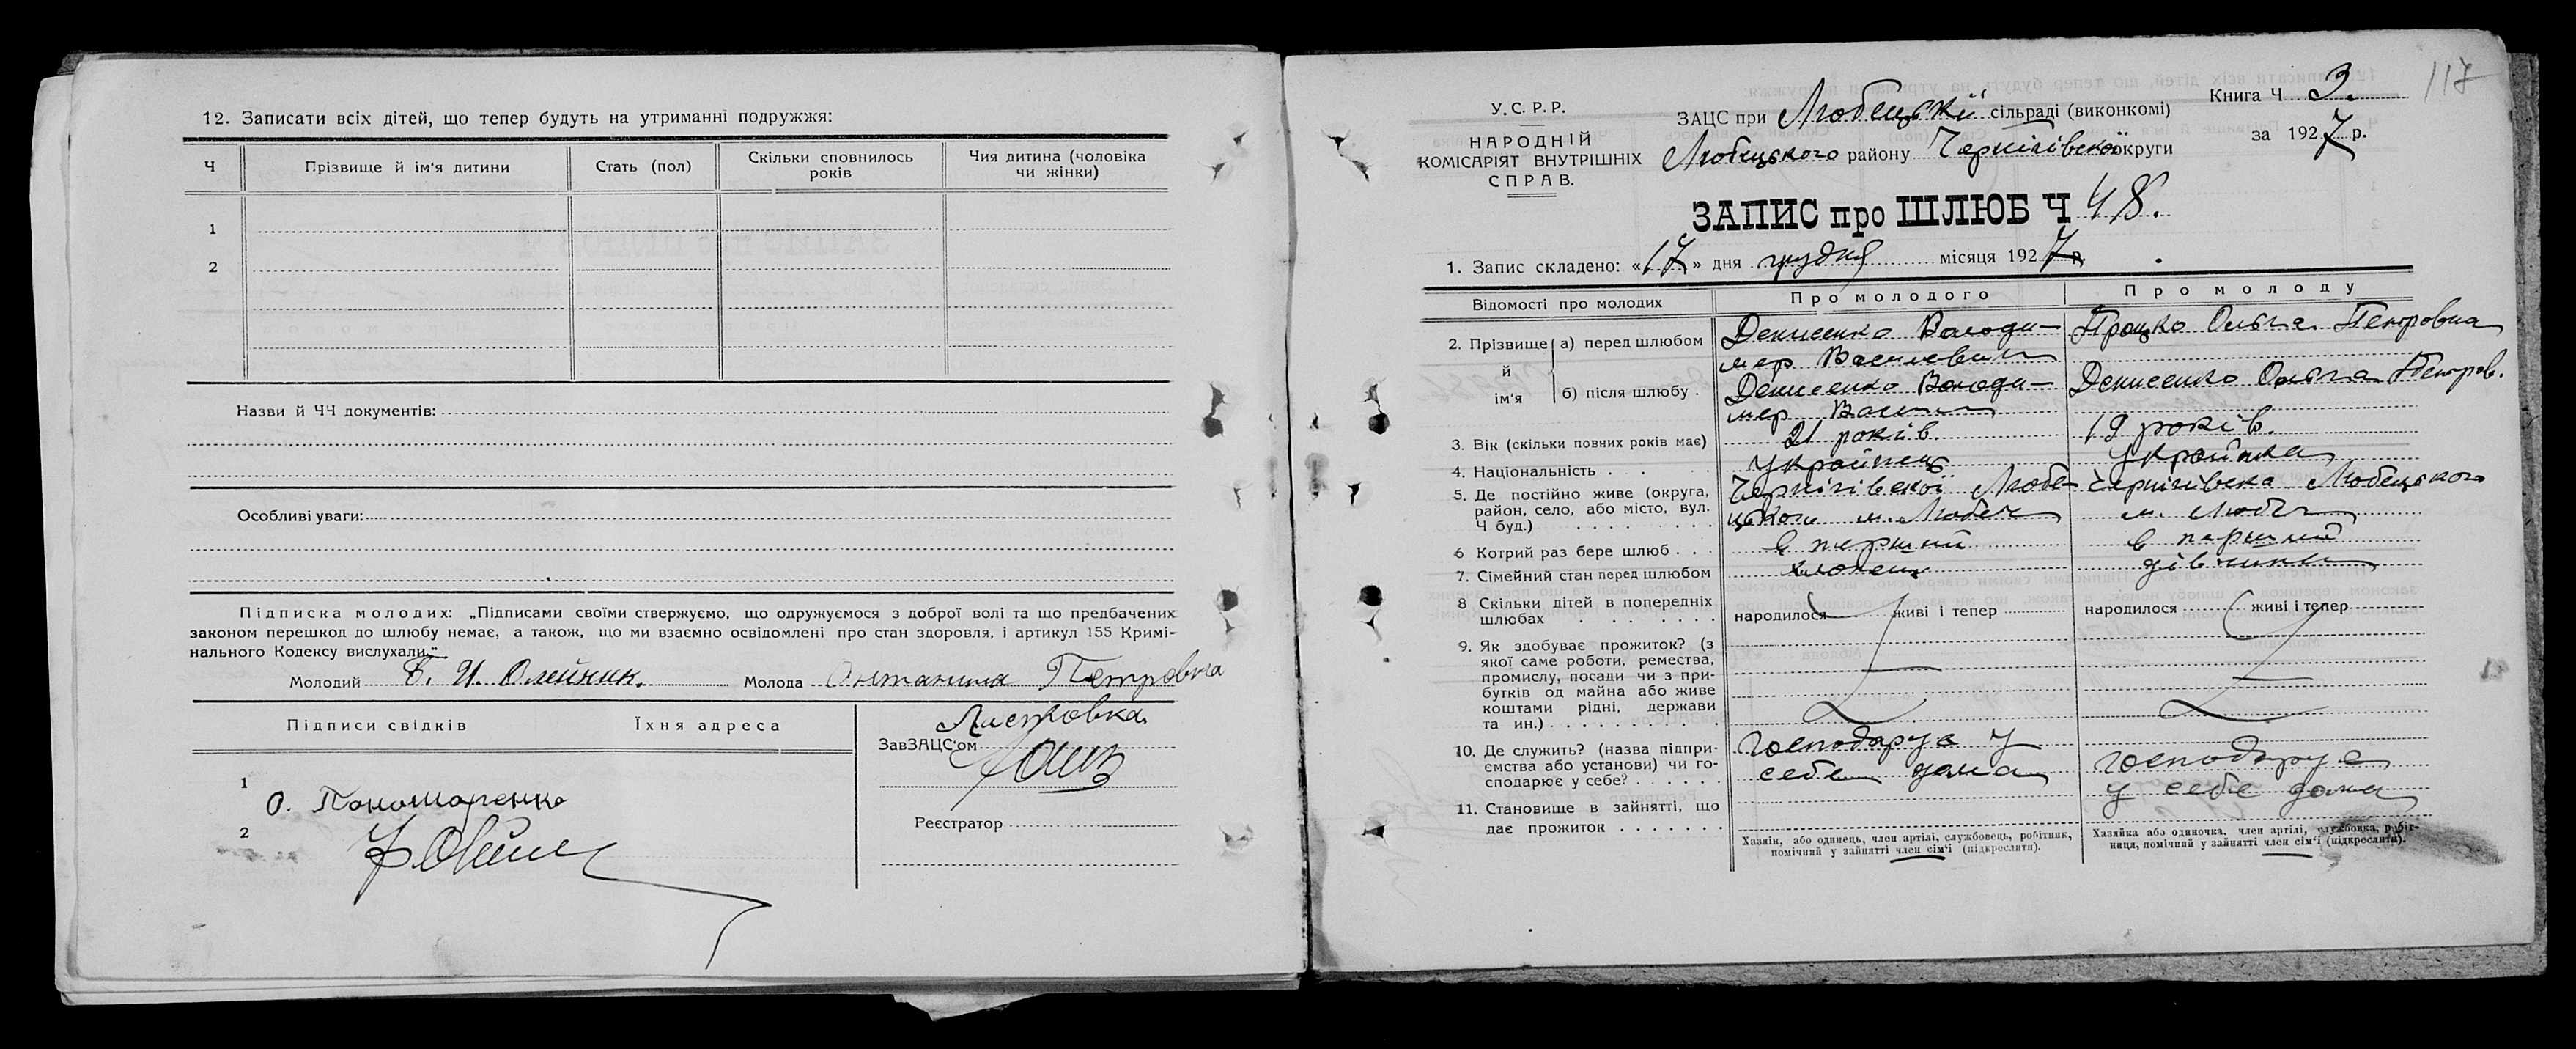 12. Записати всіх дітей, що тепер будуть на утриманні подружжя:
Ч Прізвище й ім'я дитини Стать (пол) Скільки сповнилось років Чия дитина (чоловіка чи жінки)
1
2
Назви й ЧЧ документів:
Особливі уваги:
Підписка молодих: „Підписами своїми ствержуємо, що одружуємося з доброї волі та що предбачених
законом перешкод до шлюбу немає, а також, що ми взаємно освідомлені про стан здоровля, і артикул 155 Кримі-
нального Кодексу вислухали."
Молодий В. И. Олейник. Молода Антанина Петровна
Листковка
Підписи свідків Їхня адреса
ЗавЗАЦС'ом
1 О. Пономаренко
2
Реєстратор
117
У.С.Р.Р.
НАРОДНІЙ
КОМІСАРІЯТ ВНУТРІШНІХ
СПРАВ.
ЗАЦС при Любецькій сільраді (виконкомі)
Любецького району Чернігівської округи
Книга Ч 3.
за 1927 р.
ЗАПИС про ШЛЮБ Ч 48.
1. Запис складено: «17» дня грудня місяця 1927 р.
Відомості про молодих Про молодого Про молоду
2. Прізвище й ім'я
а) перед шлюбом Денисенко Володи- Процко Ольга Петровна
мер Василевич
б) після шлюбу . Денисенко Володи- Денисенко Ольга Петров.
мер Васил
3. Вік (скільки повних років має) 21 років. 19 років.
4. Національність . . Українець Українка
5. Де постійно живе (округа, Чернігівской Любе- Чернігівска Любецького
район, село, або місто, вул. цького м. Любеч м. Любеч
Ч буд.) . . . .
6 Котрий раз бере шлюб . . . в перший в перший
7. Сімейний стан перед шлюбом хлопець дівчина
8 Скільки дітей в попередніх народилося живі і тепер народилося живі і тепер
шлюбах . . . . .
9. Як здобуває прожиток? (з
якої саме роботи, ремества,
промислу, посади чи з при-
бутків од майна або живе
коштами рідні, держави
та ин.) . . . . . . . .
10. Де служить? (назва підпри- господарує у господарує
ємства або установи) чи го- себе дома у себе дома
сподарює у себе? . . . . . .
11. Становище в зайнятті, що
дає прожиток . . . . . . .
Хазяїн, або одинець, член артілі, службовець, робітник,
помічний у зайнятті член сім'ї (підкреслити).
Хазяйка або одиночка, член артілі, службовка, робіт-
ниця, помічний у зайнятті член сім'ї (підкреслити).